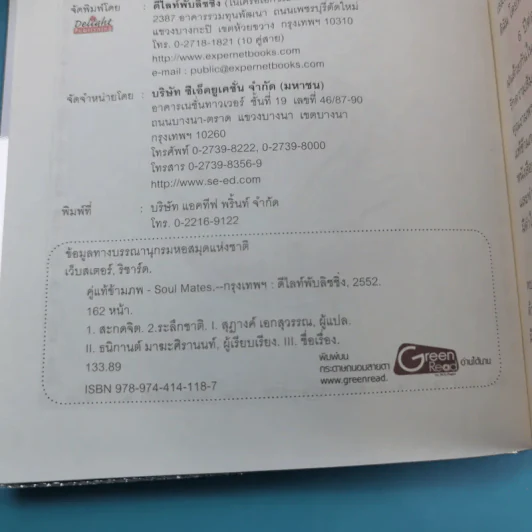 จัดพิมพ์โดย : ดีไลท์พับลิชชิ่ง
Delight
2387 อาคารรวมทุนพัฒนา ถนนเพชรบุรีตัดใหม่
แขวงบางกะปิ เขตห้วยขวาง กรุงเทพฯ 10310
โทร. 0-2718-1821 (10 คู่สาย)
http://www.expernetbooks.com
e-mail : public@expernetbooks.com
จัดจำหน่ายโดย : บริษัท ซีเอ็ดยูเคชั่น จำกัด (มหาชน)
อาคารเนชั่นทาวเวอร์ ชั้นที่ 19 เลขที่ 46/87-90
ถนนบางนา-ตราด แขวงบางนา เขตบางนา
กรุงเทพฯ 10260
โทรศัพท์ 0-2739-8222, 0-2739-8000
โทรสาร 0-2739-8356-9
http://www.se-ed.com
พิมพ์ที่ : บริษัท แอคทีฟ พริ้นท์ จำกัด
โทร. 0-2216-9122
ข้อมูลทางบรรณานุกรมหอสมุดแห่งชาติ
เว็บสเตอร์, ริชาร์ด.
คู่แท้ข้ามภพ - Soul Mates.--กรุงเทพฯ : ดีไลท์พับลิชชิ่ง, 2552.
162 หน้า.
1. สะกดจิต. 2.ระลึกชาติ. I. สุภางค์ เอกสุวรรณ, ผู้แปล.
II. ธนิกานต์ มาฆะศิรานนท์, ผู้เรียบเรียง. III. ชื่อเรื่อง.
133.89
ISBN 978-974-414-118-7
พิมพ์บน
กระดาษถนอมสายตา
www.greenread.
Green
Read
อ่านได้นาน